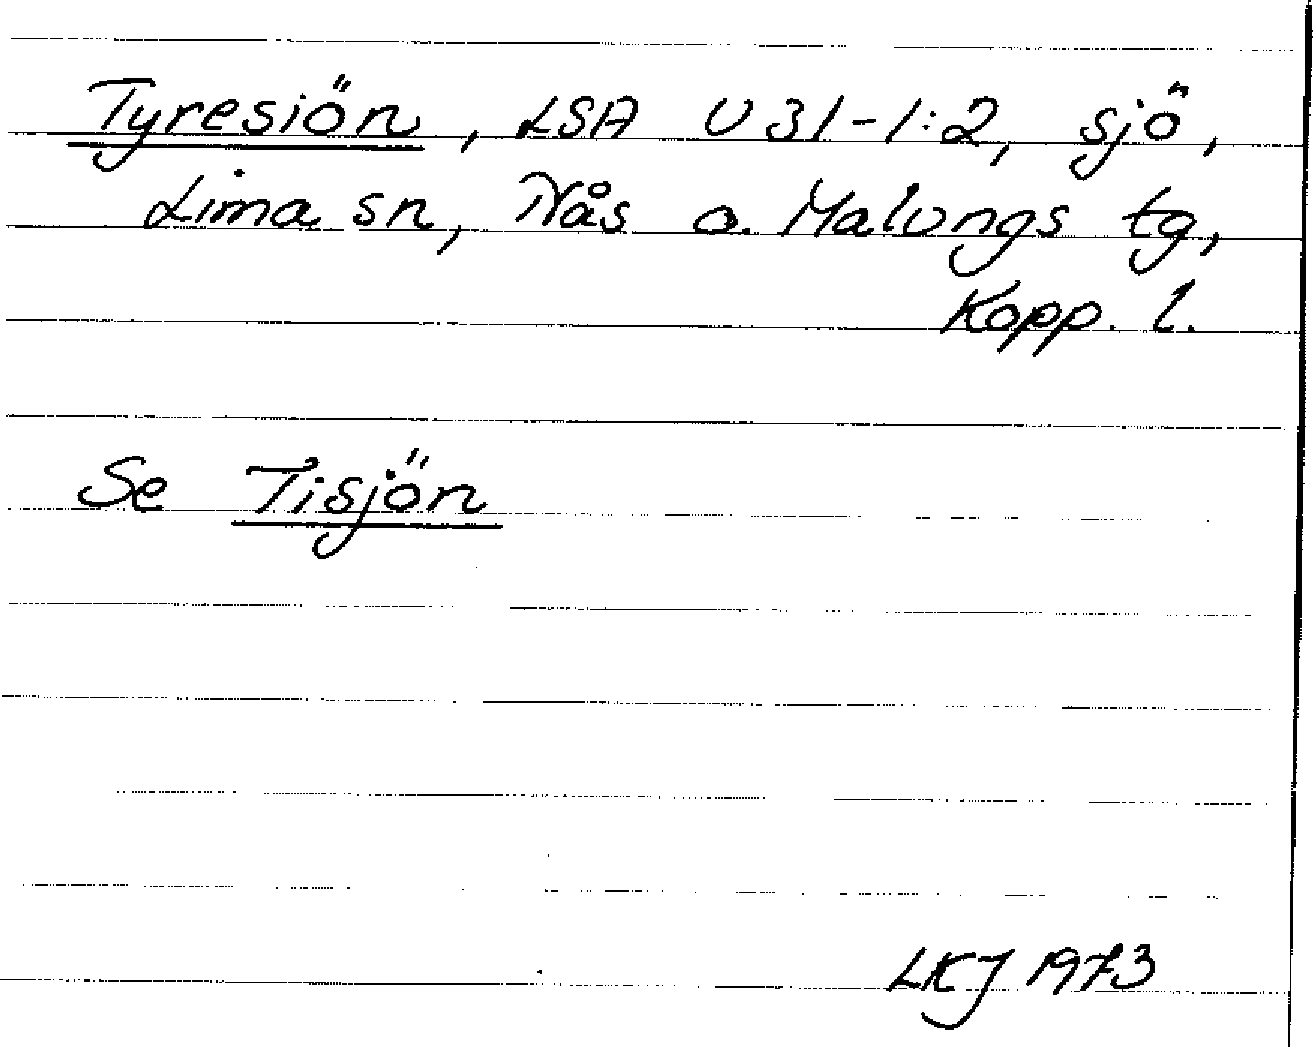 Tyresiön, LSA U 31-1:2, sjö,
Lima sn, Nås o. Malungs tg,
Kopp. l.
Se Tisjön
LKJ 1973